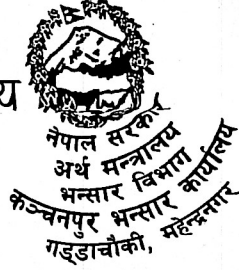 य
नेपाल सरकार
अर्थ मन्त्रालय
भन्सार विभाग
कञ्चनपुर भन्सार कार्यालय
गड्डाचौकी, महेन्द्रनगर